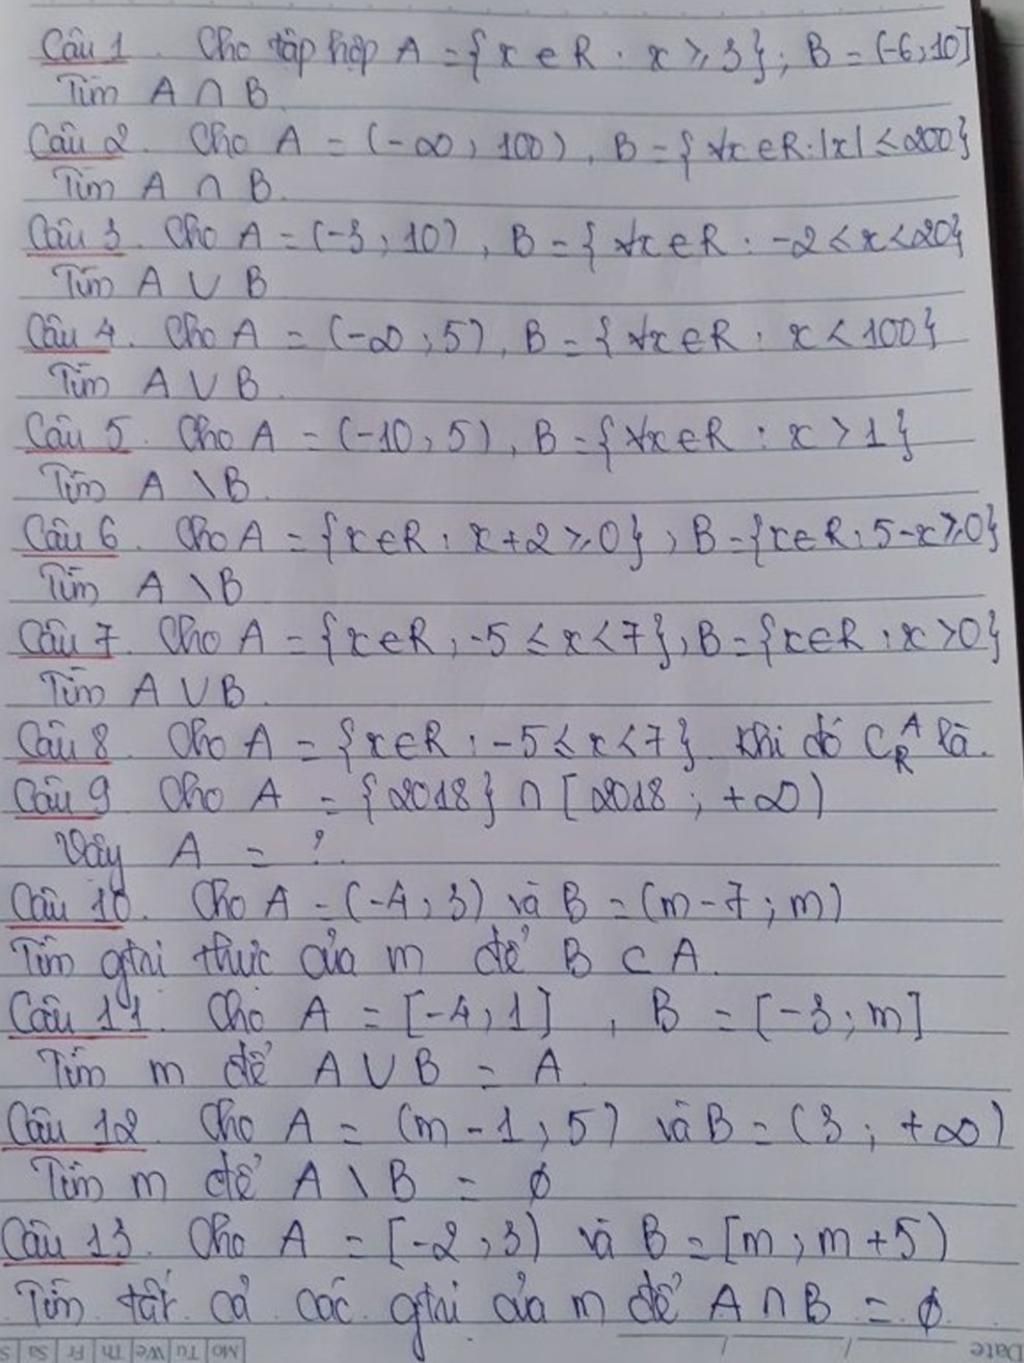 Câu 1. Cho tập hợp A = {x ∈ R : x ≥ 3} ; B = (-6, 10]
Tìm A ∩ B.
Câu 2. Cho A = (-∞ ; 100) , B = {∀x ∈ R : |x| ≤ 200}
Tìm A ∩ B.
Câu 3. Cho A = (-3 ; 10) , B = {∀x ∈ R : -2 < x < 20}
Tìm A ∪ B
Câu 4. Cho A = (-∞ ; 5) , B = {∀x ∈ R : x < 100}
Tìm A ∪ B.
Câu 5. Cho A = (-10 ; 5) , B = {∀x ∈ R : x > 1}
Tìm A \ B.
Câu 6. Cho A = {x ∈ R : x + 2 ≥ 0} ; B = {x ∈ R : 5 - x ≥ 0}
Tìm A \ B
Câu 7. Cho A = {x ∈ R ; -5 ≤ x < 7} ; B = {x ∈ R : x > 0}
Tìm A ∪ B.
Câu 8. Cho A = {x ∈ R : -5 ≤ x < 7} khi đó C_R^A là.
Câu 9 Cho A = {2018} ∩ [2018 ; +∞)
Vậy A = ?
Câu 10. Cho A = (-4 ; 3) và B = (m - 7 ; m)
Tìm gtrị thực của m để B ⊂ A.
Câu 11. Cho A = [-4 ; 1] , B = [-3 ; m]
Tìm m để A ∪ B = A.
Câu 12. Cho A = (m - 1 ; 5) và B = (3 ; +∞)
Tìm m để A \ B = ∅
Câu 13. Cho A = [-2 ; 3) và B = [m ; m + 5)
Tìm tất cả các gtrị của m để A ∩ B = ∅.
Date
Mo Tu We Th Fr Sa S